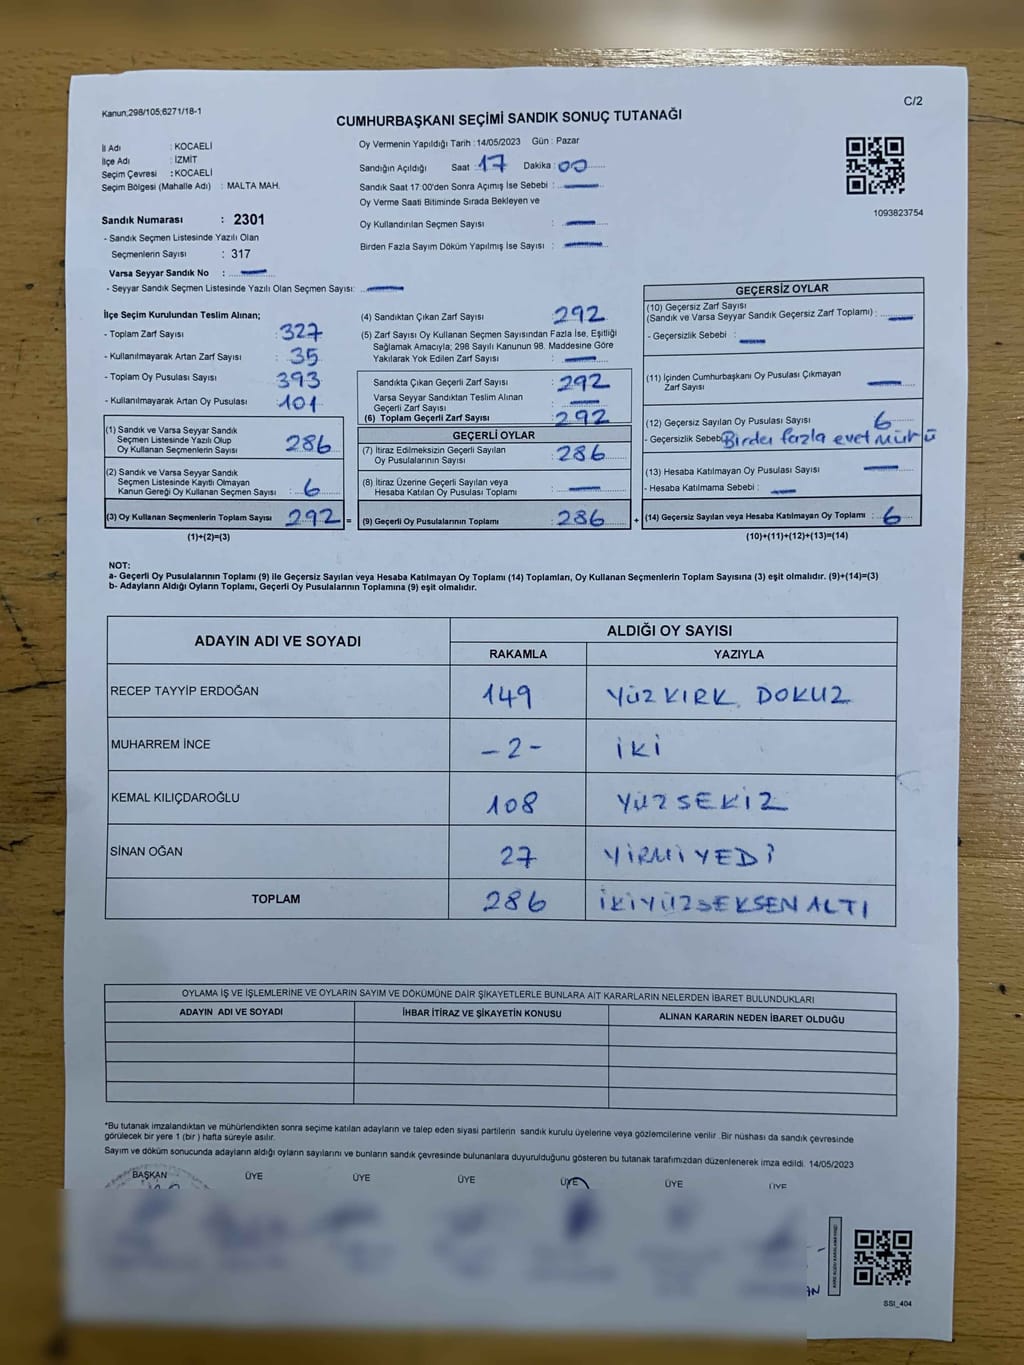 Kanun;298/105;6271/18-1
C/2
CUMHURBAŞKANI SEÇİMİ SANDIK SONUÇ TUTANAĞI
İl Adı : KOCAELİ
İlçe Adı : İZMİT
Seçim Çevresi : KOCAELİ
Seçim Bölgesi (Mahalle Adı) : MALTA MAH.
Sandık Numarası : 2301
- Sandık Seçmen Listesinde Yazılı Olan
Seçmenlerin Sayısı : 317
Varsa Seyyar Sandık No : —
- Seyyar Sandık Seçmen Listesinde Yazılı Olan Seçmen Sayısı: —
Oy Vermenin Yapıldığı Tarih : 14/05/2023 Gün : Pazar
Sandığın Açıldığı Saat : 17 Dakika : 00
Sandık Saat 17:00'den Sonra Açımış İse Sebebi : —
Oy Verme Saati Bitiminde Sırada Bekleyen ve
Oy Kullandırılan Seçmen Sayısı : —
Birden Fazla Sayım Döküm Yapılmış İse Sayısı : —
1093823754
İlçe Seçim Kurulundan Teslim Alınan;
- Toplam Zarf Sayısı : 327
- Kullanılmayarak Artan Zarf Sayısı : 35
- Toplam Oy Pusulası Sayısı : 393
- Kullanılmayarak Artan Oy Pusulası : 101
(1) Sandık ve Varsa Seyyar Sandık
Seçmen Listesinde Yazılı Olup
Oy Kullanan Seçmenlerin Sayısı : 286
(2) Sandık ve Varsa Seyyar Sandık
Seçmen Listesinde Kayıtlı Olmayan
Kanun Gereği Oy Kullanan Seçmen Sayısı : 6
(3) Oy Kullanan Seçmenlerin Toplam Sayısı : 292 =
(1)+(2)=(3)
(4) Sandıktan Çıkan Zarf Sayısı : 292
(5) Zarf Sayısı Oy Kullanan Seçmen Sayısından Fazla İse, Eşitliği
Sağlamak Amacıyla; 298 Sayılı Kanunun 98. Maddesine Göre
Yakılarak Yok Edilen Zarf Sayısı : —
Sandıkta Çıkan Geçerli Zarf Sayısı : 292
Varsa Seyyar Sandıktan Teslim Alınan
Geçerli Zarf Sayısı : —
(6) Toplam Geçerli Zarf Sayısı : 292
GEÇERLİ OYLAR
(7) İtiraz Edilmeksizin Geçerli Sayılan
Oy Pusulalarının Sayısı : 286
(8) İtiraz Üzerine Geçerli Sayılan veya
Hesaba Katılan Oy Pusulası Toplamı : —
(9) Geçerli Oy Pusulalarının Toplamı : 286 +
GEÇERSİZ OYLAR
(10) Geçersiz Zarf Sayısı
(Sandık ve Varsa Seyyar Sandık Geçersiz Zarf Toplamı) : —
- Geçersizlik Sebebi : —
(11) İçinden Cumhurbaşkanı Oy Pusulası Çıkmayan
Zarf Sayısı : —
(12) Geçersiz Sayılan Oy Pusulası Sayısı : 6
- Geçersizlik Sebebi Birden fazla evet mührü
(13) Hesaba Katılmayan Oy Pusulası Sayısı : —
- Hesaba Katılmama Sebebi : —
(14) Geçersiz Sayılan veya Hesaba Katılmayan Oy Toplamı : 6
(10)+(11)+(12)+(13)=(14)
NOT:
a- Geçerli Oy Pusulalarının Toplamı (9) ile Geçersiz Sayılan veya Hesaba Katılmayan Oy Toplamı (14) Toplamları, Oy Kullanan Seçmenlerin Toplam Sayısına (3) eşit olmalıdır. (9)+(14)=(3)
b- Adayların Aldığı Oyların Toplamı, Geçerli Oy Pusulalarının Toplamına (9) eşit olmalıdır.
ADAYIN ADI VE SOYADI ALDIĞI OY SAYISI
RAKAMLA YAZIYLA
RECEP TAYYİP ERDOĞAN 149 YÜZKIRK DOKUZ
MUHARREM İNCE -2- İKİ
KEMAL KILIÇDAROĞLU 108 YÜZSEKİZ
SİNAN OĞAN 27 YİRMİYEDİ
TOPLAM 286 İKİYÜZSEKSENALTI
OYLAMA İŞ VE İŞLEMLERİNE VE OYLARIN SAYIM VE DÖKÜMÜNE DAİR ŞİKAYETLERLE BUNLARA AİT KARARLARIN NELERDEN İBARET BULUNDUKLARI
ADAYIN ADI VE SOYADI İHBAR İTİRAZ VE ŞİKAYETİN KONUSU ALINAN KARARIN NEDEN İBARET OLDUĞU
*Bu tutanak imzalandıktan ve mühürlendikten sonra seçime katılan adayların ve talep eden siyasi partilerin sandık kurulu üyelerine veya gözlemcilerine verilir .Bir nüshası da sandık çevresinde
görülecek bir yere 1 (bir ) hafta süreyle asılır.
Sayım ve döküm sonucunda adayların aldığı oyların sayılarını ve bunların sandık çevresinde bulunanlara duyurulduğunu gösteren bu tutanak tarafımızdan düzenlenerek imza edildi. 14/05/2023
BAŞKAN ÜYE ÜYE ÜYE ÜYE ÜYE ÜYE
SSI_404